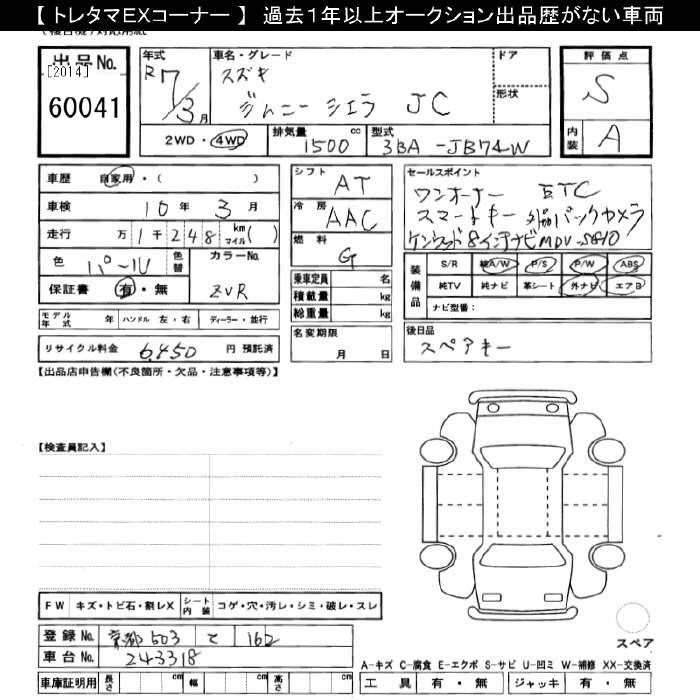 【 トレタマEXコーナー 】 過去１年以上オークション出品歴がない車両
出品No.
[2014]
60041
年式
R7/3月
車名・グレード
スズキ
ジムニー シエラ JC
ドア
形状
評価点
S
内装
A
2WD・4WD
排気量
1500 cc
型式
3BA-JB74W
車歴 自家用・( )
車検 10年 3月
走行 万 1千248 km マイル( )
色 パール 色替
カラーNo.
ZVR
保証書 有・無
モデル年式 年 ハンドル 左・右 ディーラー・並行
リサイクル料金 6,450 円 預託済
シフト
AT
冷房
AAC
燃料
G
乗車定員 名
積載量 kg
総重量 kg
名変期限
月 日
セールスポイント
ワンオーナー ETC
スマートキー 外品バックカメラ
ケンウッド8インチナビ MDV-S810
装備品
S/R 純A/W P/S P/W ABS
純TV 純ナビ 革シート 外ナビ エアB
ナビ型番：
後日品
スペアキー
【出品店申告欄(不良箇所・欠品・注意事項等)】
【検査員記入】
FW キズ・トビ石・割レX シート内装 コゲ・穴・汚レ・シミ・破レ・スレ
登録No. 京都 503 て 162
車台No. 243318
車庫証明用 長さ cm 幅 cm 高さ cm
スペア
A-キズ C-腐食 E-エクボ S-サビ U-凹ミ W-補修 XX-交換済
工具 有・無 ジャッキ 有・無